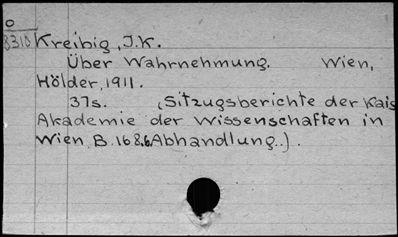 O
8310 Kreibig, J.K.
Über Wahrnehmung. Wien,
Hölder, 1911.
37s. (Sitzugsberichte der Kais
Akademie der Wissenschaften in
Wien, B. 168.6 Abhandlung.).